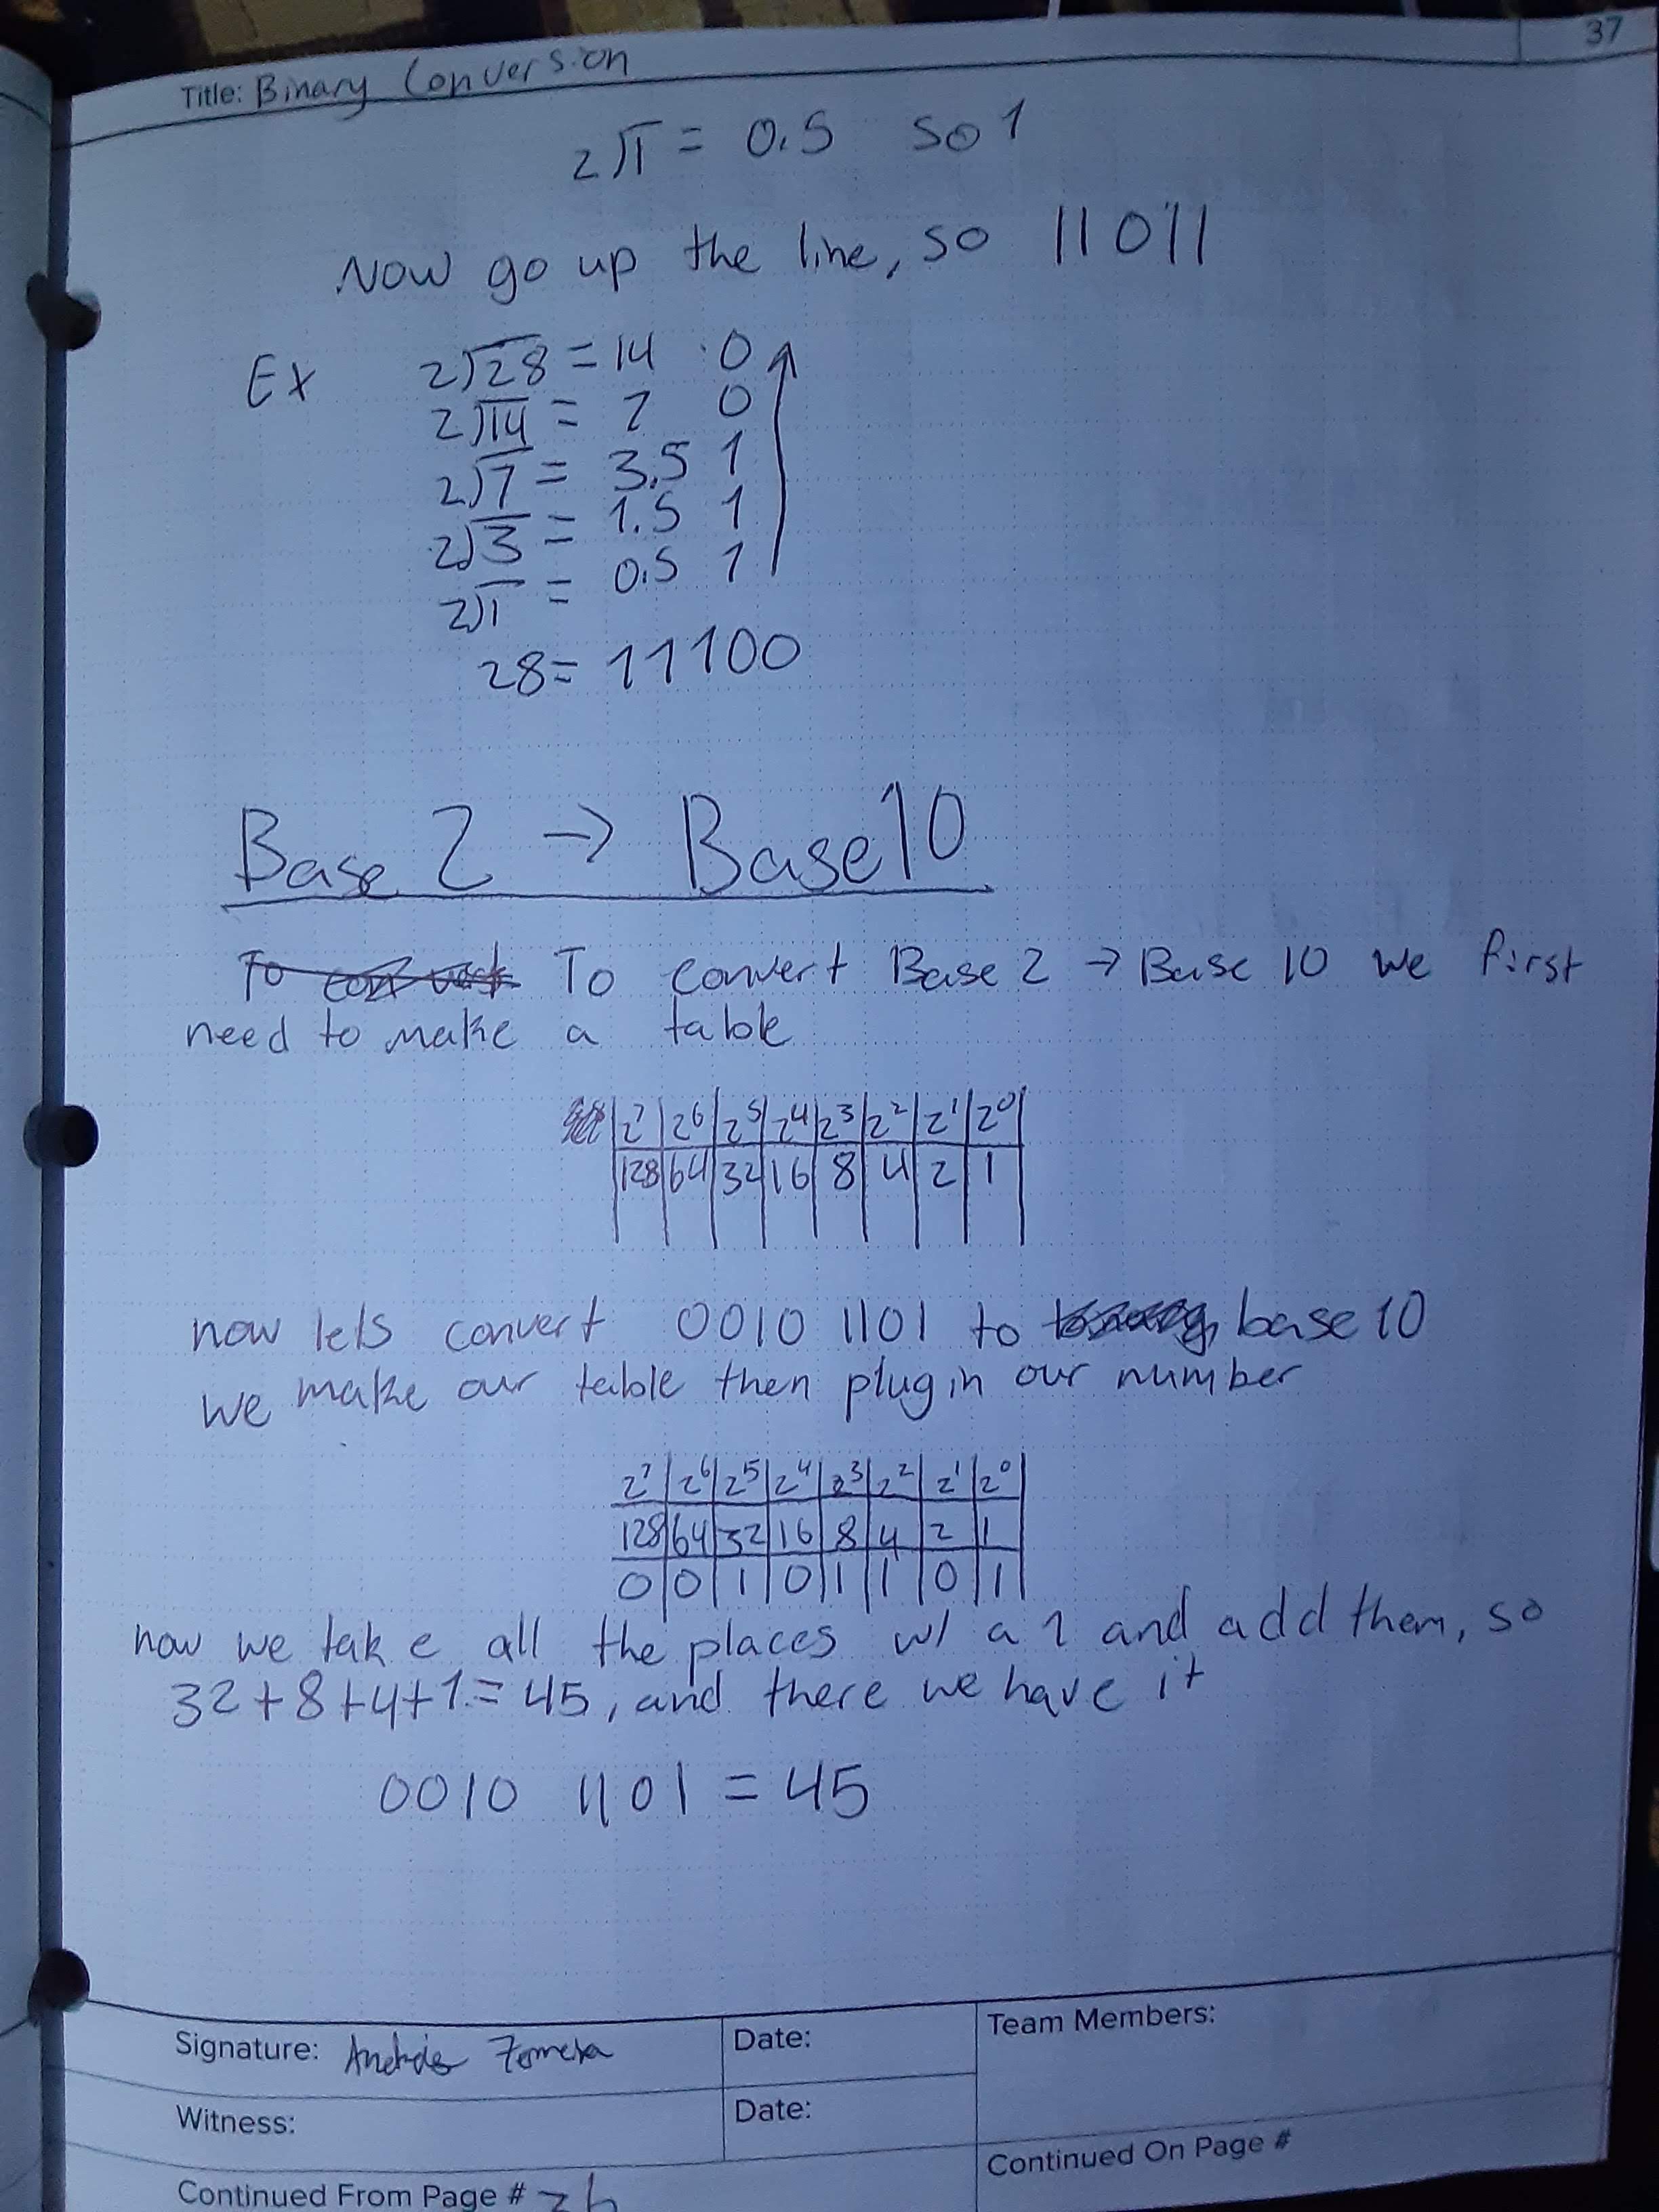 37
Title: Binary Conversion
2⟌1 = 0.5 so 1
Now go up the line, so 11011
Ex 2⟌28 = 14 0
2⟌14 = 7 0
2⟌7 = 3.5 1
2⟌3 = 1.5 1
2⟌1 = 0.5 1
28 = 11100
Base 2 → Base 10
To convert Base 2 → Base 10 we first
need to make a table
2⁷ 2⁶ 2⁵ 2⁴ 2³ 2² 2¹ 2⁰
128 64 32 16 8 4 2 1
now lets convert 0010 1101 to base 10
we make our table then plug in our number
2⁷ 2⁶ 2⁵ 2⁴ 2³ 2² 2¹ 2⁰
128 64 32 16 8 4 2 1
0 0 1 0 1 1 0 1
now we take all the places w/ a 1 and add them, so
32+8+4+1=45, and there we have it
0010 1101 = 45
Signature:
Date:
Team Members:
Witness:
Date:
Continued From Page #
Continued On Page #